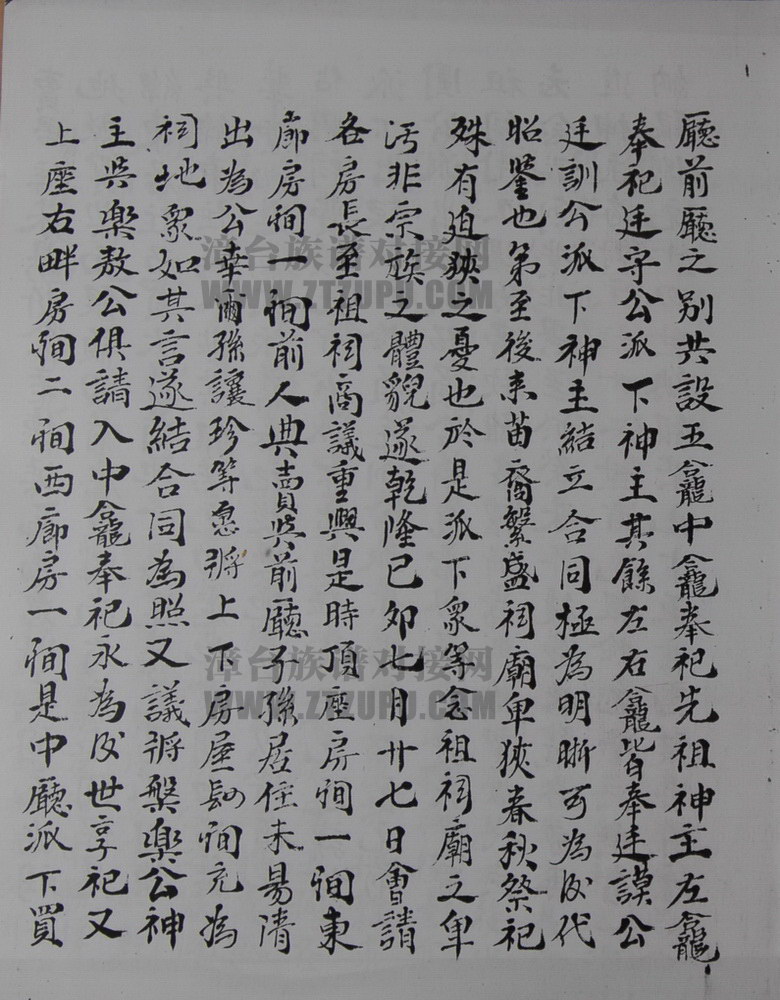 廳前廳之别共設五龕中龕奉祀先祖神主左龕
奉祀廷守公派下神主其餘左右龕皆奉廷謨公
廷訓公派下神主結立合同極為明晰可為後代
昭鑒也第至後來苗裔繁盛祠廟卑狹春秋祭祀
殊有迫狹之憂也於是派下衆等念祖祠廟之卑
汚非宗族之體貌遂乾隆己卯七月廿七日會請
各房長至祖祠商議重興是時頂座房間一間東
廊房間一間前人典賣與前廳子孫居住未易清
出為公幸爾孫讓珍等急將上下房屋間充為
祠地衆如其言遂結合同為照又議將槃樂公神
主與樂敖公俱請入中龕奉祀永為後世享祀又
上座右畔房間二間西廊房一間是中廳派下買
漳台族谱对接网
WWW.ZTZUPU.COM
漳台族谱对接网
WWW.ZTZUPU.COM